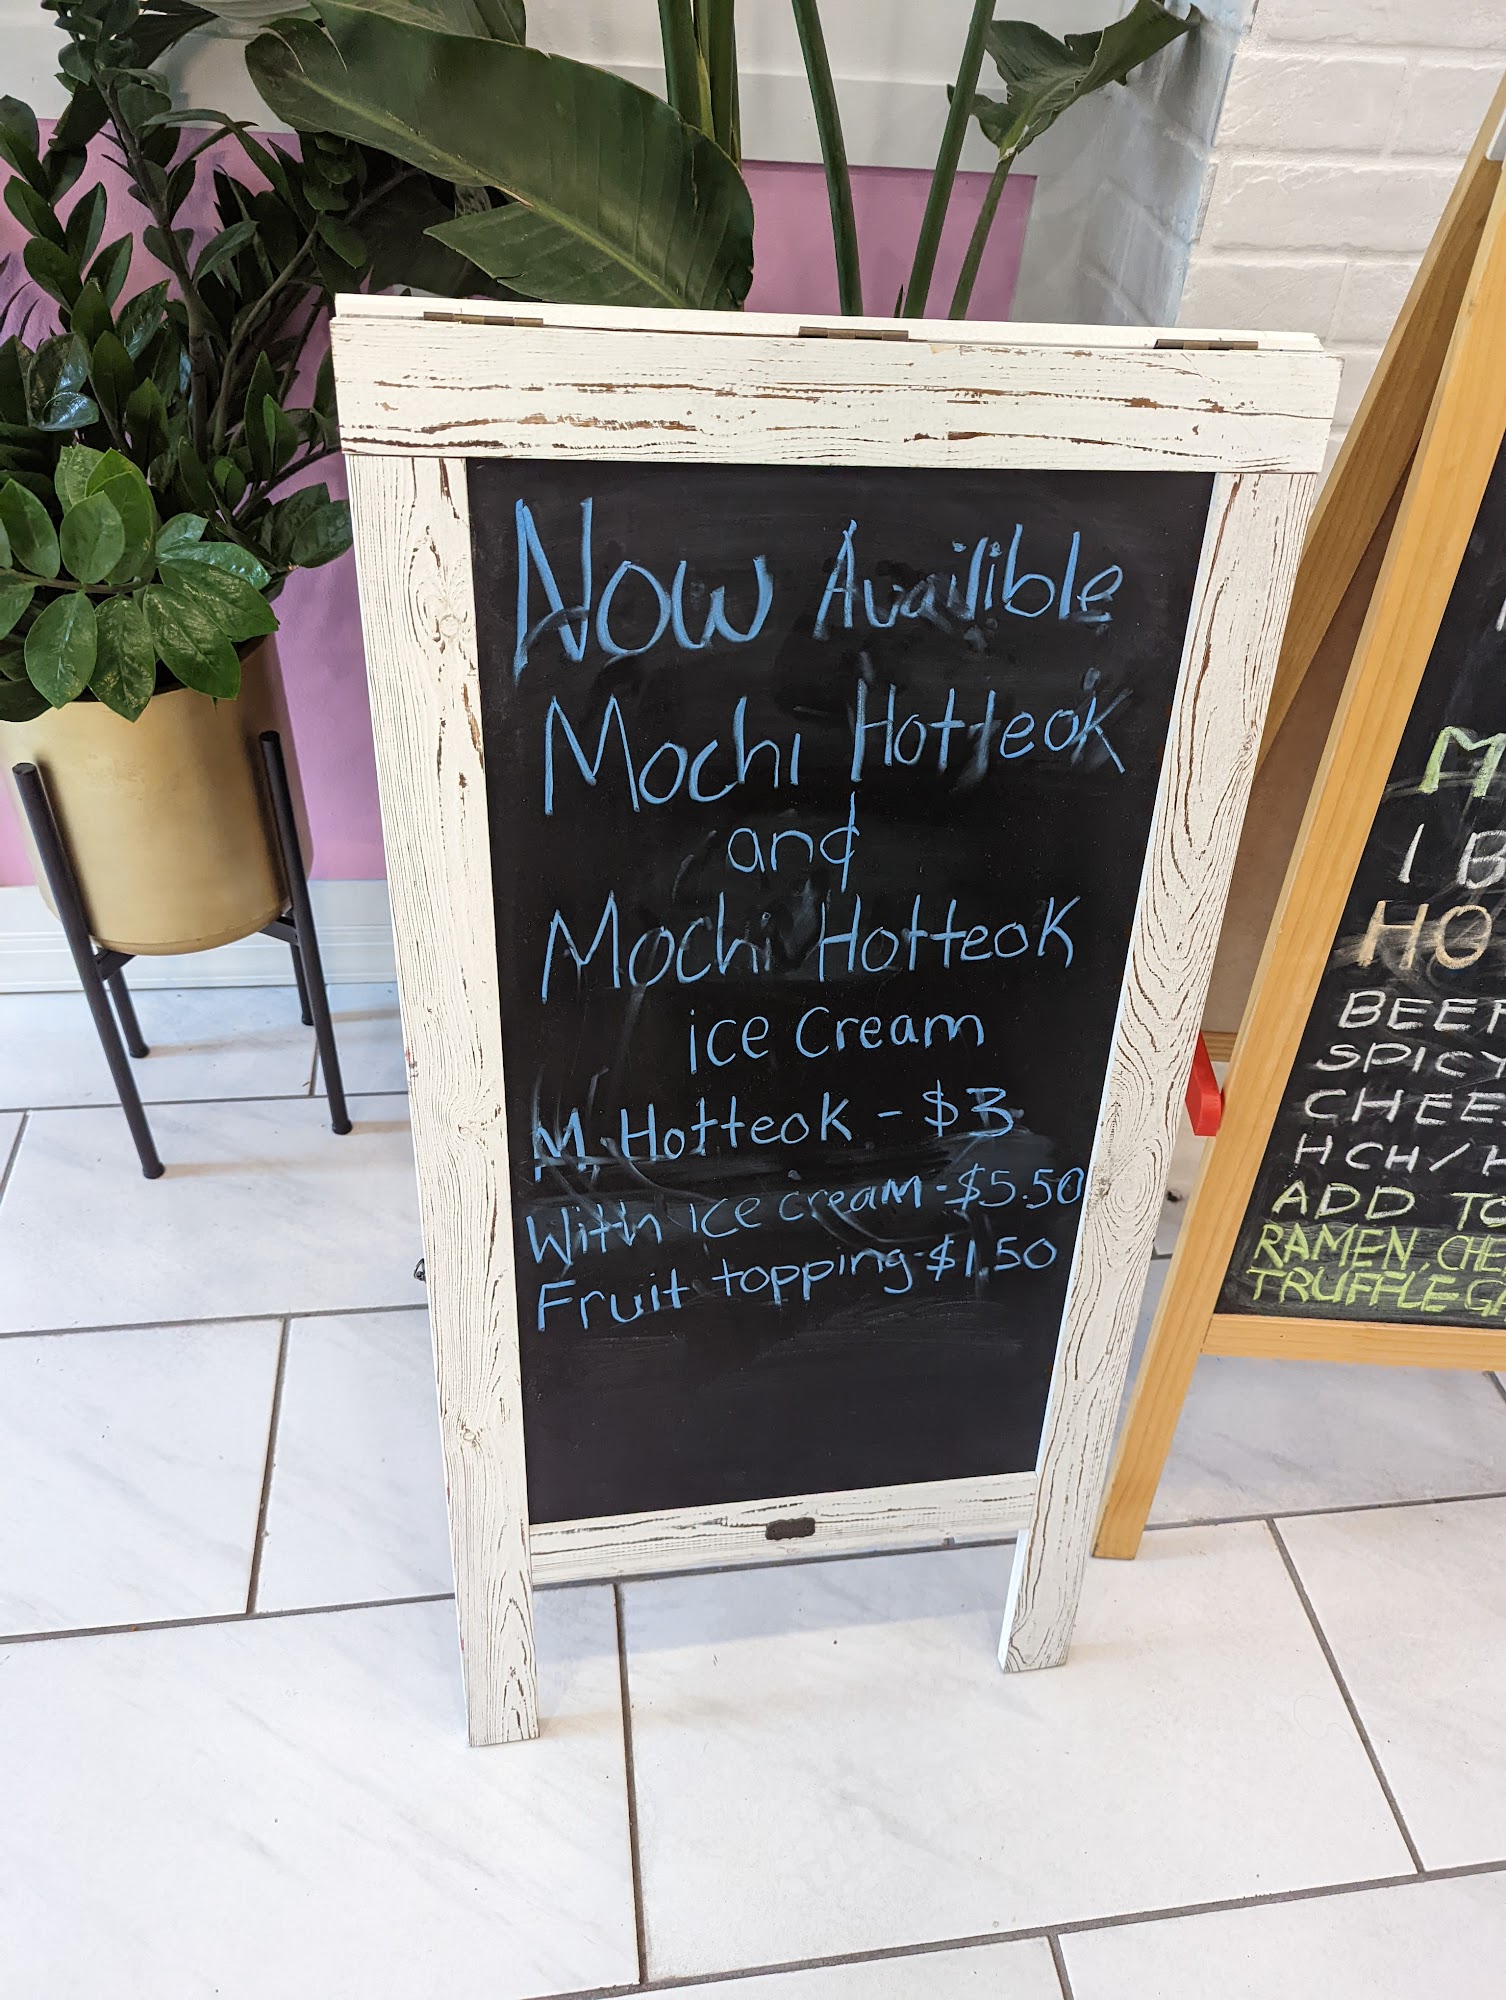 Now Availible
Mochi Hotteok
and
Mochi Hotteok
ice Cream
M. Hotteok - $3
With ice cream - $5.50
Fruit topping - $1.50
M
I B
HO
BEEF
SPICY
CHEE
HCH/H
ADD TO
RAMEN, CHE
TRUFFLE GA